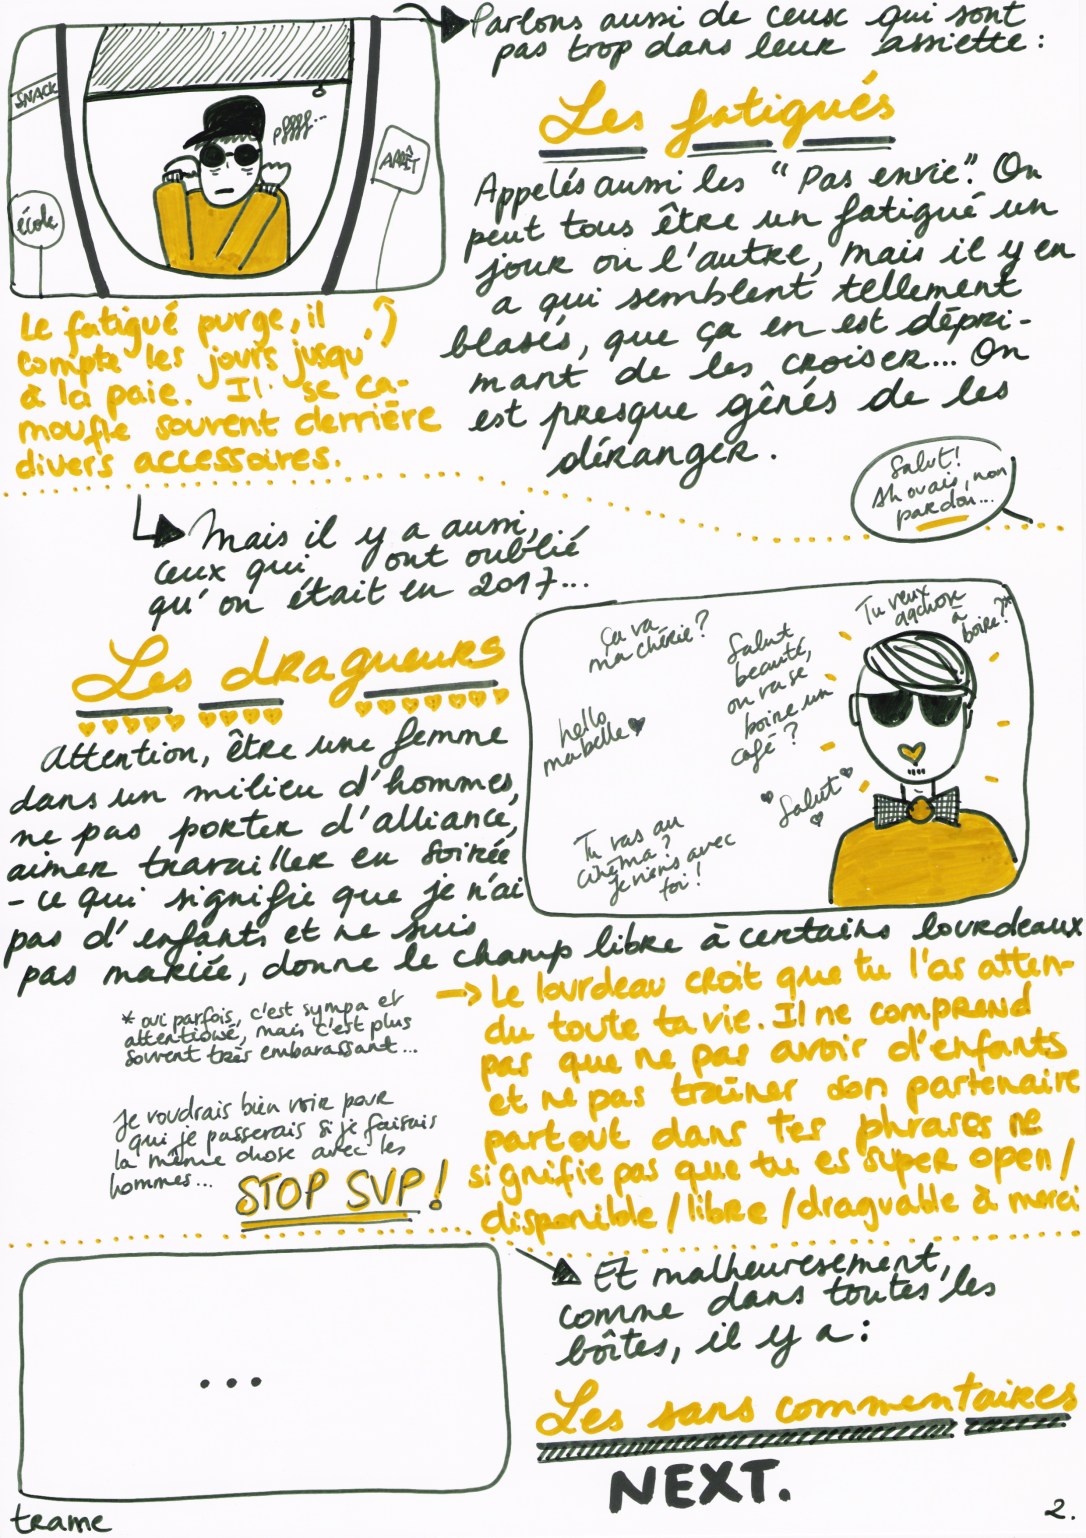 Parlons aussi de ceux qui sont
pas trop dans leur assiette :
Les fatigués
SNACK
pffff...
ARRÊT
école
Appelés aussi les "Pas envie". On
peut tous être un fatigué un
jour ou l'autre, mais il y en
a qui semblent tellement
blasés, que ça en est dépri-
mant de les croiser... On
est presque gênés de les
déranger.
Le fatigué purge, il
compte les jours jusqu'
à la paie. Il se ca-
moufle souvent derrière
divers accessoires.
Salut!
Ah ouais, non
pardon...
Mais il y a aussi,
ceux qui ont oublié
qu'on était en 2017...
Les dragueurs
Attention, être une femme
dans un milieu d'hommes,
ne pas porter d'alliance,
aimer travailler en soirée
- ce qui signifie que je n'ai
pas d'enfants et ne suis
pas mariée, donne le champ libre à certains lourdeaux
Ça va
ma chérie?
Salut
beauté,
on va se
boire un
café?
Tu veux
qqchose
à
boire?*
hello
ma belle
Salut
Tu vas au
cinéma?
Je viens avec
toi!
* oui parfois, c'est sympa et
attentionné, mais c'est plus
souvent très embarassant...
Je voudrais bien voir pour
qui je passerais si je faisais
la même chose avec les
hommes...
STOP SVP!
→ Le lourdeau croit que tu l'as atten-
du toute ta vie. Il ne comprend
pas que ne pas avoir d'enfants
et ne pas traîner son partenaire
partout dans tes phrases ne
signifie pas que tu es super open/
disponible/libre/draguable à merci
Et malheuresement,
comme dans toutes les
boîtes, il y a :
...
Les sans commentaires
NEXT.
trame
2.